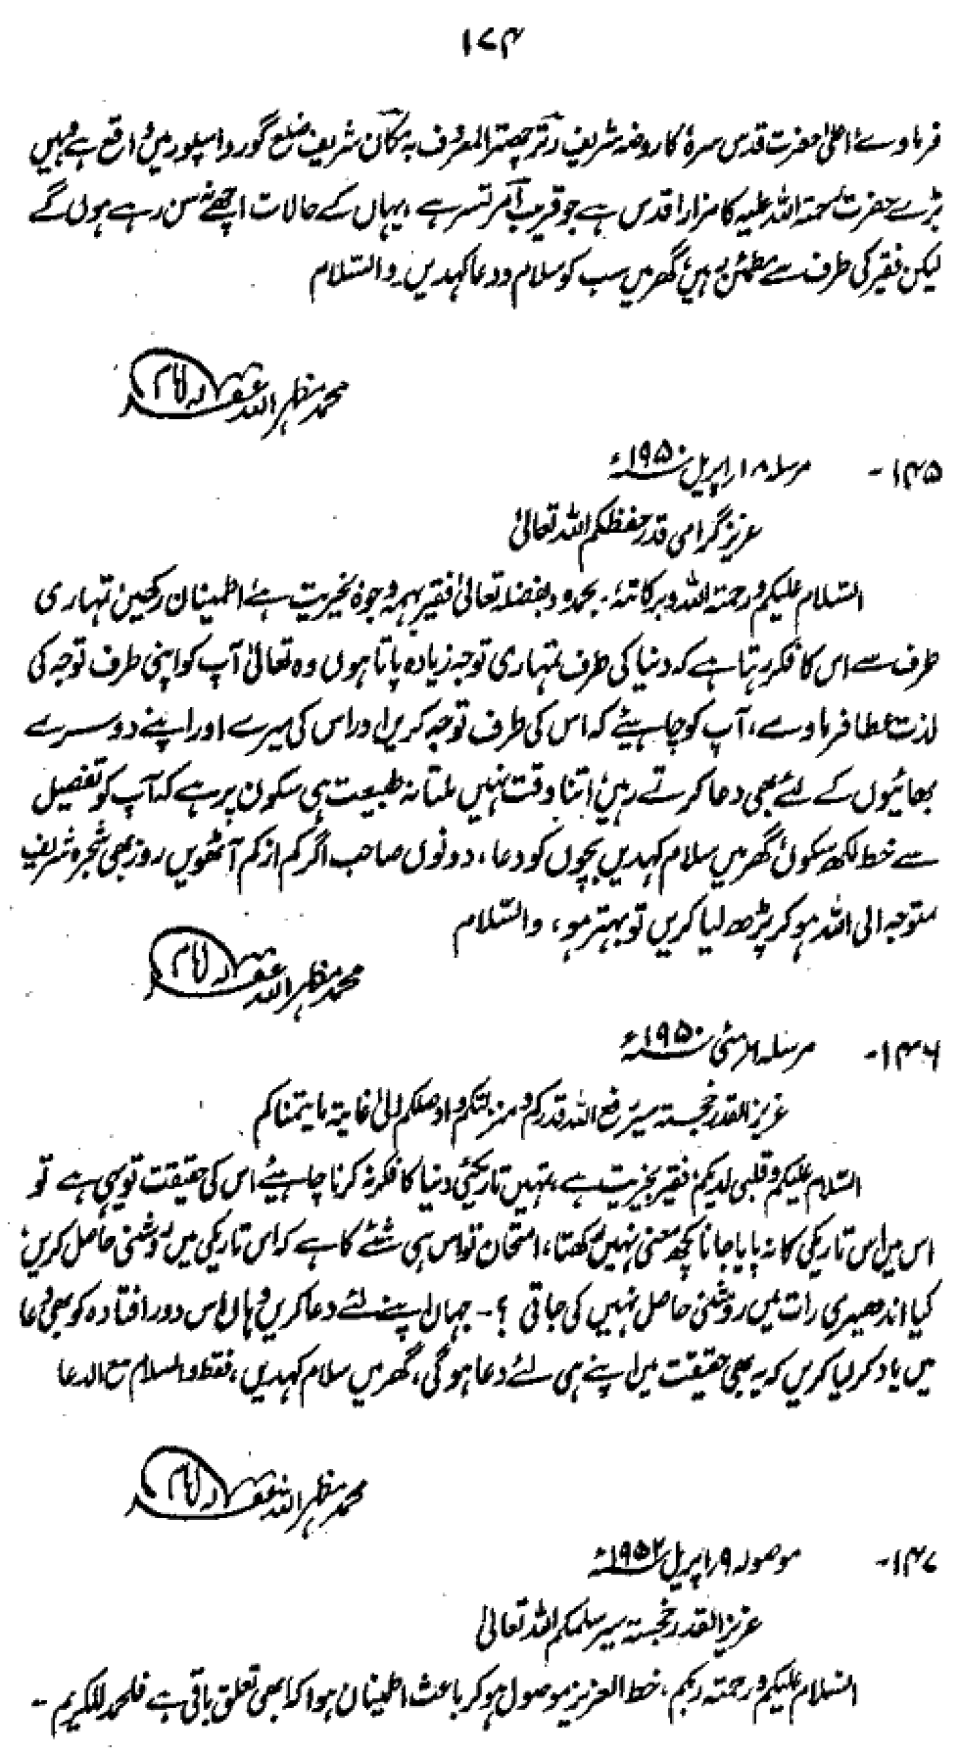 ۱۷۴
فرماوے اعلیٰ حضرت قدس سرہٗ کا روضہ شریف رتڑ چھتڑ المعروف بہ مکان شریف ضلع گورداسپور میں واقع ہے وہیں
بڑے حضرت رحمۃ اللہ علیہ کا مزار اقدس ہے جو قریب امرتسر ہے، یہاں کے حالات اچھے نہ سن رہے ہوں گے
لیکن فقیر کی طرف سے مطمئن رہیں، گھر میں سب کو سلام و دعا کہدیں۔ والسّلام
محمد مظہر اللہ غفرلہ امام
۱۴۵- مرسلہ ۱۸ اپریل ۱۹۵۰ء
عزیز گرامی قدر حفظکم اللہ تعالیٰ
السّلام علیکم ورحمتہ اللہ وبرکاتہٗ۔ بحمدہ وبفضلہ تعالیٰ فقیر بہمہ وجوہ بخیریت ہے، اطمینان رکھیں تمہاری
طرف سے اس کا فکر رہتا ہے کہ دنیا کی طرف تمہاری توجہ زیادہ پاتا ہوں وہ تعالیٰ آپ کو اپنی طرف توجہ کی
لذت عطا فرماوے، آپ کو چاہیئے کہ اس کی طرف توجہ کریں اور اس کی میرے اور اپنے دوسرے
بھائیوں کے لئے بھی دعا کرتے رہیں، اتنا وقت نہیں ملتا نہ طبیعت ہی سکون پر ہے کہ آپ کو تفصیل
سے خط لکھ سکوں، گھر میں سلام کہدیں بچوں کو دعا، دونوں صاحب اگر کم از کم آٹھویں روز بھی شجرہ شریف
متوجہ الی اللہ ہو کر پڑھ لیا کریں تو بہتر ہو، والسّلام
محمد مظہر اللہ غفرلہ امام
۱۴۶- مرسلہ مئی ۱۹۵۰ء
عزیز القدر خجستہ سیر رفع اللہ قدرکم ومنزلتکم واوصلکم الیٰ غایۃ ما یتمناکم
السّلام علیکم وقلبی لدیکم، فقیر بخیریت ہے، تمہیں تاریکئی دنیا کا فکر نہ کرنا چاہیئے اس کی حقیقت تو یہی ہے تو
اس میں اس تاریکی کا نہ پایا جانا کچھ معنی نہیں رکھتا، امتحان تو اس ہی شئے کا ہے کہ اس تاریکی میں روشنی حاصل کریں
کیا اندھیری رات میں روشنی حاصل نہیں کی جاتی ؟۔ جہاں اپنے لئے دعا کریں وہاں اس دور افتادہ کو بھی دعا
میں یاد کر لیا کریں کہ یہ بھی حقیقت میں اپنے ہی لئے دعا ہوگی، گھر میں سلام کہدیں، فقط والسلام مع الدعا
محمد مظہر اللہ غفرلہ امام
۱۴۷- موصولہ ۹ اپریل ۱۹۵۲ء
عزیز القدر خجستہ سیر سلمکم اللہ تعالیٰ
السّلام علیکم ورحمتہ ربکم، خط العزیز موصول ہو کر باعث اطمینان ہوا کہ ابھی تعلق باقی ہے فلحمد للکریم -